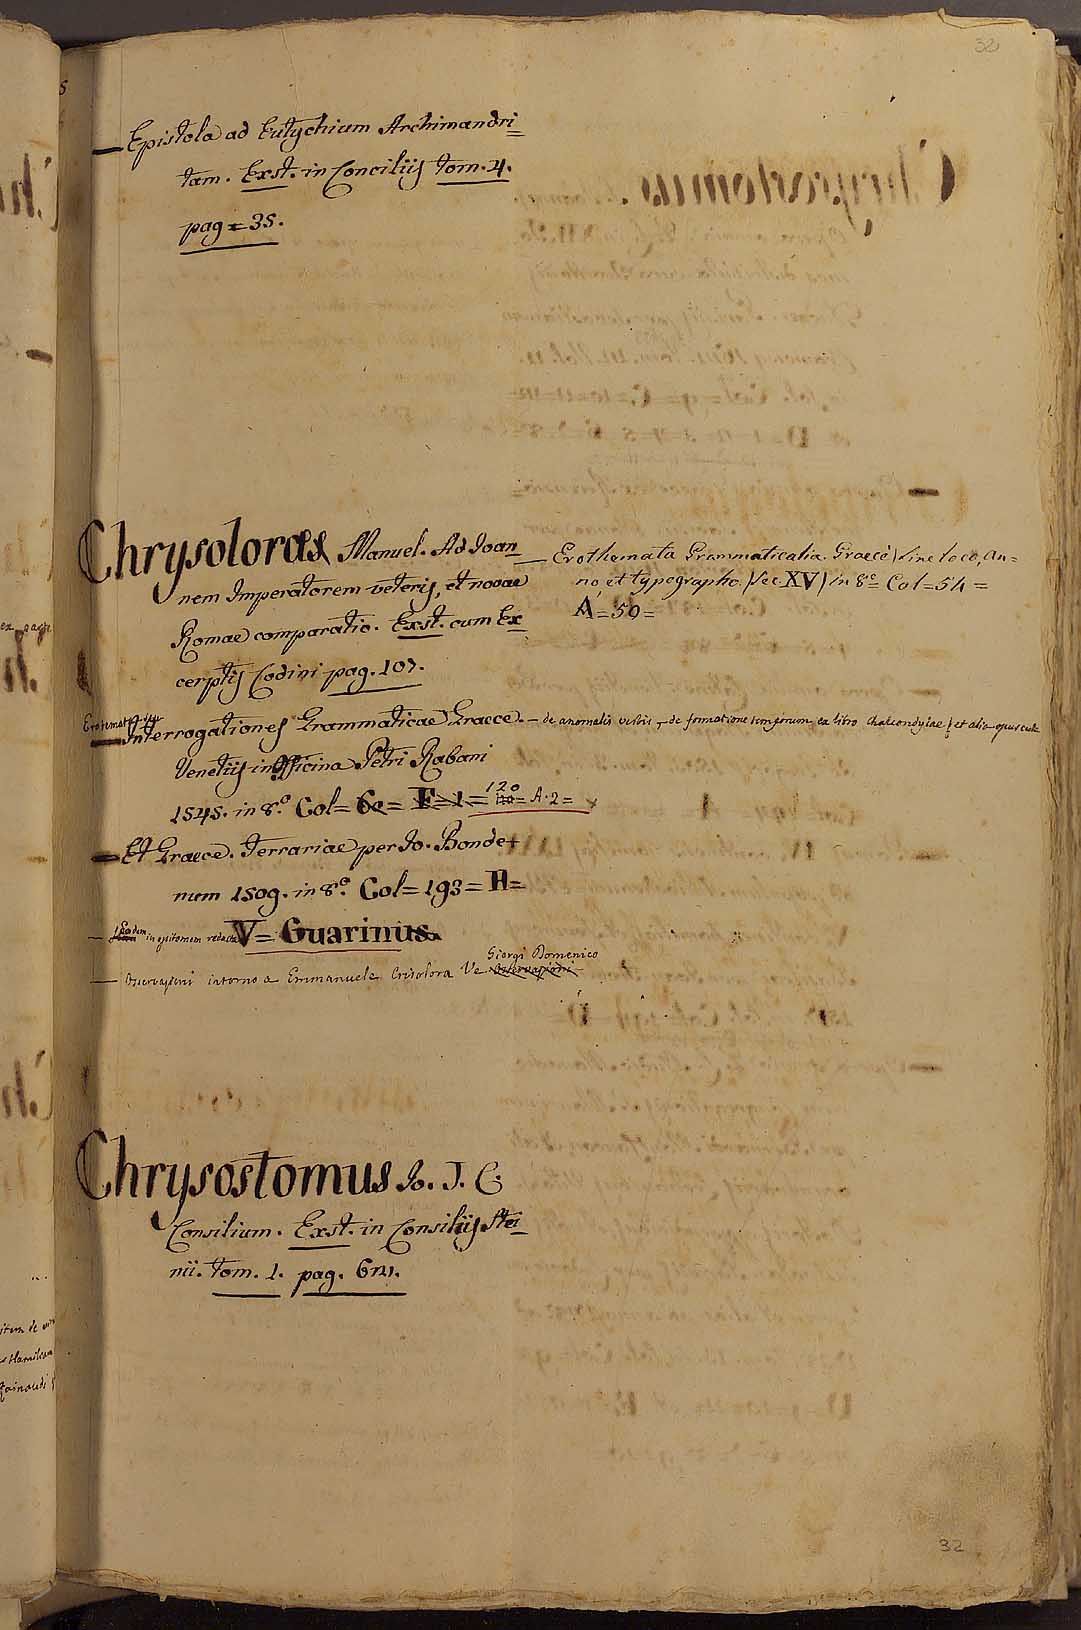 32
— Epistola ad Eutychium Archimandri=
tam. Exst. in Conciliis tom. 4.
pag = 35.
Chrysoloras Manuel. Ad Joan=
nem Imperatorem veteris, et novae
Romae comparatio. Exst. cum Ex=
cerptis Codini pag. 107.
— Erothemata Grammaticalia. Graece) sine loco, an=
no, et typographo (sec XV) in 8.º Col = 54 =
A = 59 =
— Interrogationes Grammaticae Graece. — de anomalis verbis, — de formatione temporum ex libro Chalcondylae) et alia opuscula
Venetiis in Officina Petri Rabani
1545. in 8.º Col = 120 = A. 2 =
— Et Graece. Ferrariae per Jo. Bonde+
num 1509. in 8.º Col = 193 = H =
— Eadem in epitomen redacta V = Guarinus.
— Osservazioni intorno a Emmanuele Crisolora Ve Giorgi Domenico
Chrysostomus Jo. J. C.
Consilium. Exst. in Consiliis Ste=
nii. tom. 1. pag.
32